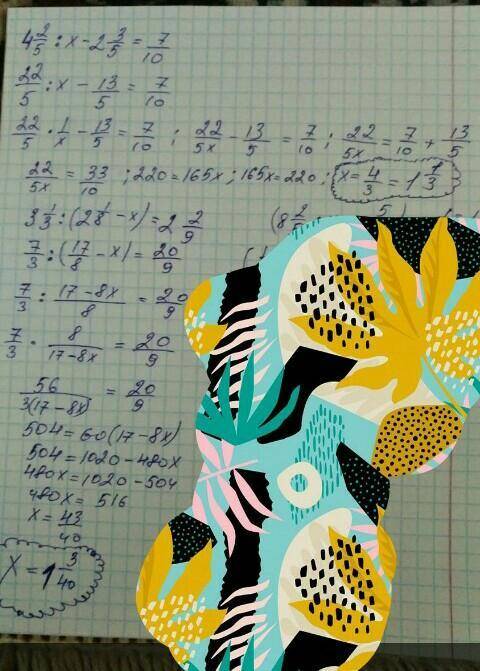 4 2/5 : x - 2 3/5 = 7/10
22/5 : x - 13/5 = 7/10
22/5 · 1/x - 13/5 = 7/10 ; 22/5x - 13/5 = 7/10 ; 22/5x = 7/10 + 13/5
22/5x = 33/10 ; 220 = 165x ; 165x = 220 ; x = 4/3 = 1
: (2 1/8 - x) = 2 2/9 (8
7/3 : (17/8 - x) = 20/9 (
7/3 : 17-8x/8 = 20
7/3 · 8/17-8x = 20/9
56/3(17-8x) = 20/9
504 = 60(17-8x)
504 = 1020 - 480x
480x = 1020 - 504
480x = 516
x = 43/40
x = 1 3/40